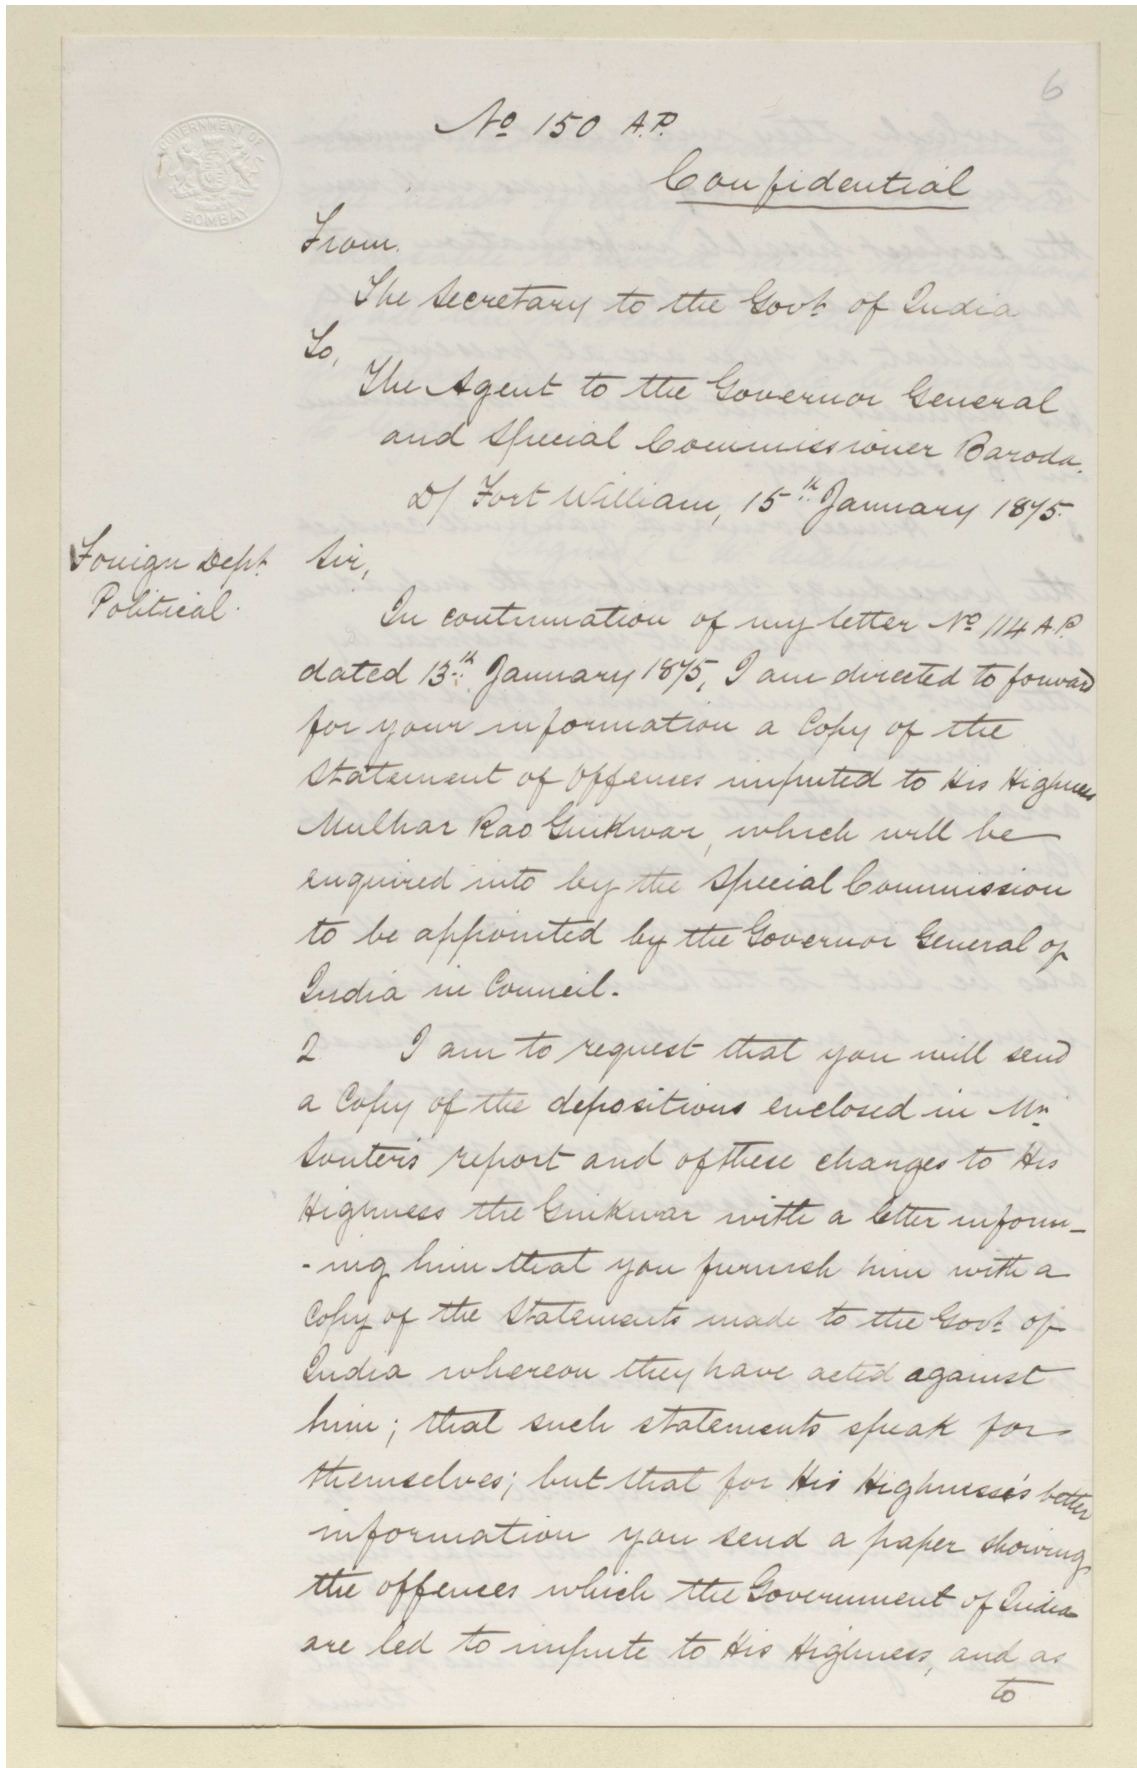 6
No 150 A.P.
GOVERNMENT OF
BOMBAY
Confidential
From.
The Secretary to the Govt of India
To,
The Agent to the Governor General
and Special Commissioner Baroda.
D/ Fort William, 15th January 1875.
Foreign Dept.
Political.
Sir,
In continuation of my letter No 114 A.P.
dated 13th January 1875, I am directed to forward
for your information a Copy of the
Statement of Offences imputed to His Highness
Mulhar Rao Guikwar, which will be
enquired into by the Special Commission
to be appointed by the Governor General of
India in Council.
2 I am to request that you will send
a Copy of the depositions enclosed in Mr
Souter's report and of these charges to His
Highness the Guikwar with a letter inform-
-ing him that you furnish him with a
Copy of the Statements made to the Govt of
India whereon they have acted against
him; that such statements speak for
themselves; but that for His Highness's better
information you send a paper showing
the offences which the Government of India
are led to impute to His Highness, and as
to